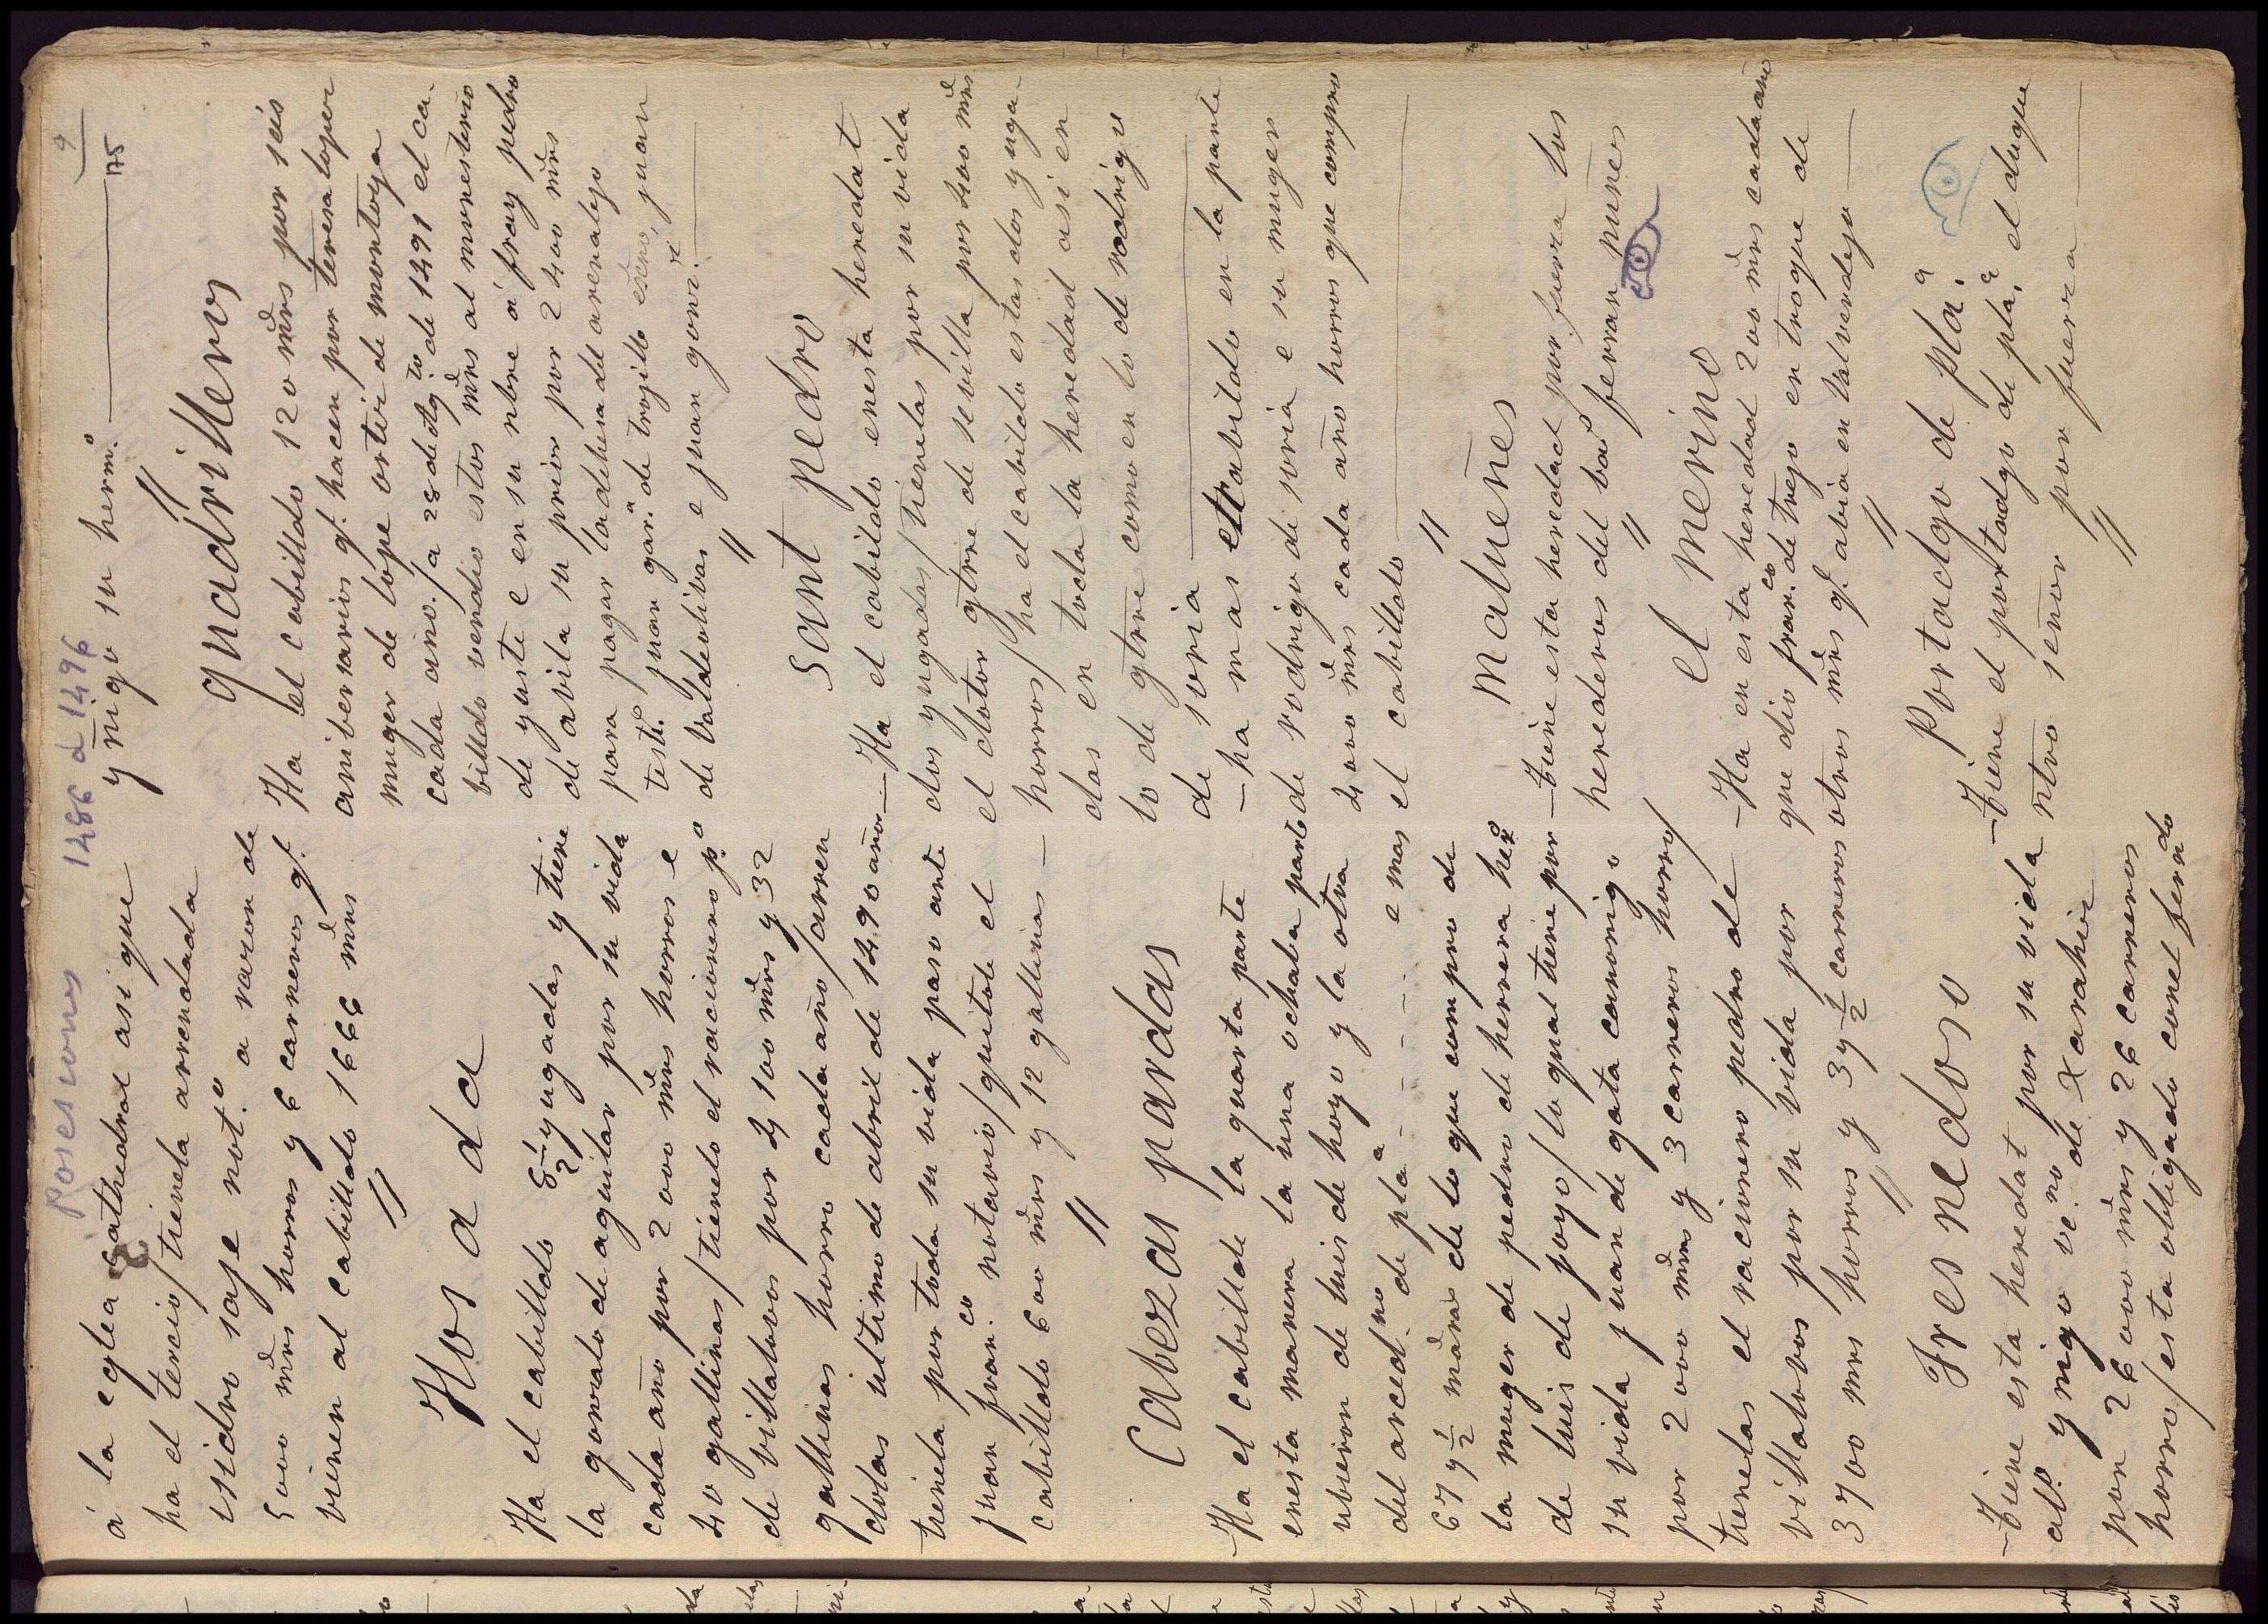 Posesiones 1486 a 1496
9
175
á la eglea cathedral asi que
ha el tercio/tienela arrendada
esidro saje not.º a raxon de
5000 mrs horros y 6 carneros q.
vienen al cabilldo 1666 mrs
//
Hosada
Ha el cabilldo 5½ yugadas y tiene
la gonzalo de aguilar por su vida
cada año por 2000 mrs horros e
40 gallinas/tienelo el racionero p.º
de villalovos por 4100 mrs y 32
gallinas horro cada año/corren
dolas ultimo de abril de 1490 años
tienela por toda su vida paso ante
juan fran.co notario/quitole el
cabilldo 600 mrs y 12 gallinas —
//
Cabezas pardas
Ha el cabilldo la quarta parte
enesta manera la una ochaba parte
ubieron de luis de hoyo y la otra
del arced.no de pla.a - - - - - e mas
67 y ½ mrs de lo que compro de
la muger de pedro de herrera her.o
de luis de poyo/lo qual tiene por
su vida juan de gata canonigo
por 2000 mrs y 3 carneros horro/
tienelas el racionero pedro de
villalovos por su vida por
3700 mrs horros y 3 y ½ carneros
//
Fresnedoso
-tiene esta heredat por su vida
al.º ynigo ve.no de Xarahiz
por 26000 mrs y 26 carneros
horro/esta obligado conel fern.do
yñigo su herm.o ———
//
quadrilleros
Ha el cabilldo 120 mrs por seis
anibersarios q. hacen por teresa lopez
muger de lope ortiz de montoya
cada año./a 28 de ag.to de 1491 el ca-
billdo vendio estos mrs al monesterio
de yuste e en su nbre á fray pedro
de avila su prior por 2400 mrs
para pagar la dehesa del arenalejo
test.o juan gar.a de trojillo escno, juan
de valdeolibas e juan gonz.z ———
//
Sant pedro
-Ha el cabilldo enesta heredat
dos yugadas/tienelas por su vida
el dotor gtrre de sevilla por 400 mrs
horros/ha el cabildo estas dos yuga-
das en toda la heredad asi en
lo de gtrre como en lo de rodrigo
de soria ———
-ha mas el cabilldo en la parte
de rodrigo de soria e su muger
4000 mrs cada año horros que compro
el cabilldo ———
//
Matueñes
-tiene esta heredad por fuerza los
herederos del ba.r ferran nuñes
//
el merino
-Ha en esta heredad 200 mrs cada año
que dio fran.co de trejo en troque de
otros mrs q. abia en Valverdejo ———
//
Portadgo de pla.a
-tiene el portadgo de pla.a el duque
ntro señor por fuerza ———
//